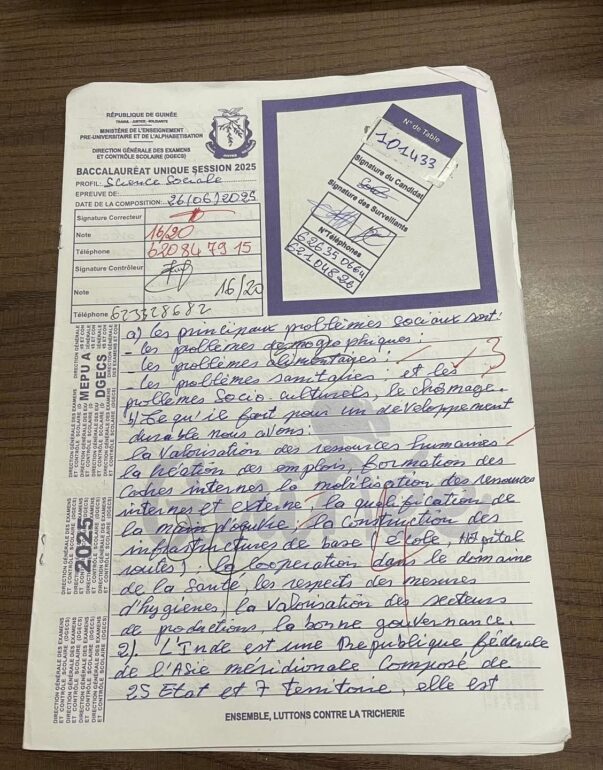 RÉPUBLIQUE DE GUINÉE
TRAVAIL - JUSTICE - SOLIDARITÉ
MINISTÈRE DE L'ENSEIGNEMENT
PRE-UNIVERSITAIRE ET DE L'ALPHABETISATION
DIRECTION GÉNÉRALE DES EXAMENS
ET CONTRÔLE SCOLAIRE (DGECS)
BACCALAURÉAT UNIQUE SESSION 2025
PROFIL: Science Sociale
EPREUVE DE:
DATE DE LA COMPOSITION: 26/06/2025
Signature Correcteur
Note 16/20
Téléphone 620 84 79 15
Signature Contrôleur
Note 16/20
Téléphone 623828682
N° de Table
101433
Signature du Candidat
Signature des Surveillants
N°Téléphones
a) les principaux problèmes sociaux sont:
- les problèmes demographiques:
- les problèmes alimentaires: 3
- les problèmes sanitaires et les
problèmes socio-culturels, le chômage.
b) Ce qu'il faut pour un developpement
durable nous avons:
la valorisation des ressources humaines
la création des emplois, formation des
cadres internes la mobilisation des ressources
internes et externe, la qualification de
la main d'œuvre, la construction des
infrastructures de base (école, Hôpital
routes); la cooperation dans le domaine
de la santé les respects des mesures
d'hygiènes, la valorisation des secteurs
de productions, la bonne gouvernance.
2). L'Inde est une République fédérale
de l'Asie méridionale composé de
25 Etat et 7 territoire, elle est
MEPU A
DGECS
2025
DIRECTION GÉNÉRALE DES EXAMENS
ET CONTRÔLE SCOLAIRE (DGECS)
ENSEMBLE, LUTTONS CONTRE LA TRICHERIE